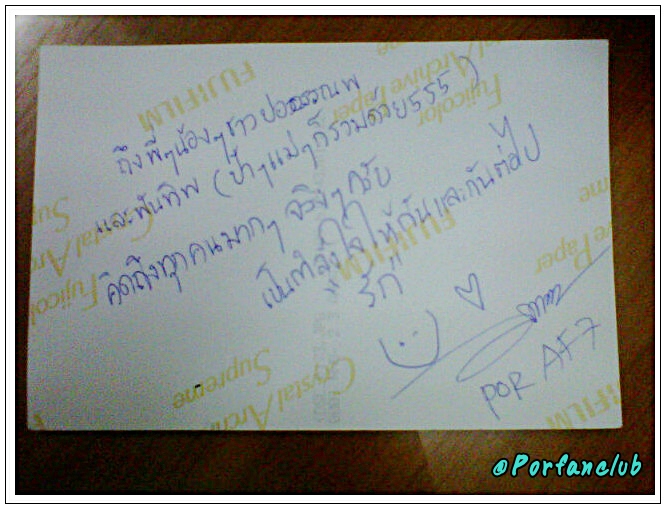 ถึงพี่ๆน้องๆชาวปออรรณพ
และพันทิพ (ป้าๆแม่ๆก็รวมด้วย555)
คิดถึงทุกคนมากๆ จริงๆครับ
เป็นกำลังใจให้กันและกันต่อไป
รัก
POR AF7
FUJIFILM
Fujicolor
Crystal Archive Paper
Supreme
@Porfanclub